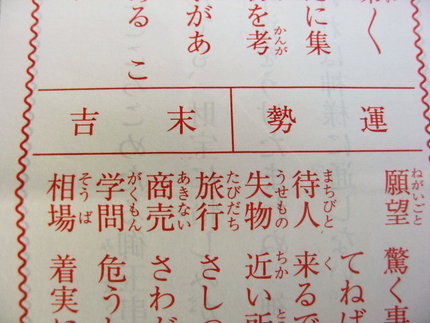 く
に集
を考
かんが
があ
る こ
運勢
末吉
願望 驚く事
ねがいごと
てねば
待人 来るで
まちびと く
失物 近い所
うせもの ちか と
旅行 さしつ
たびだち
商売 さわが
あきない
学問 危う
がくもん
相場 着実に
そうば